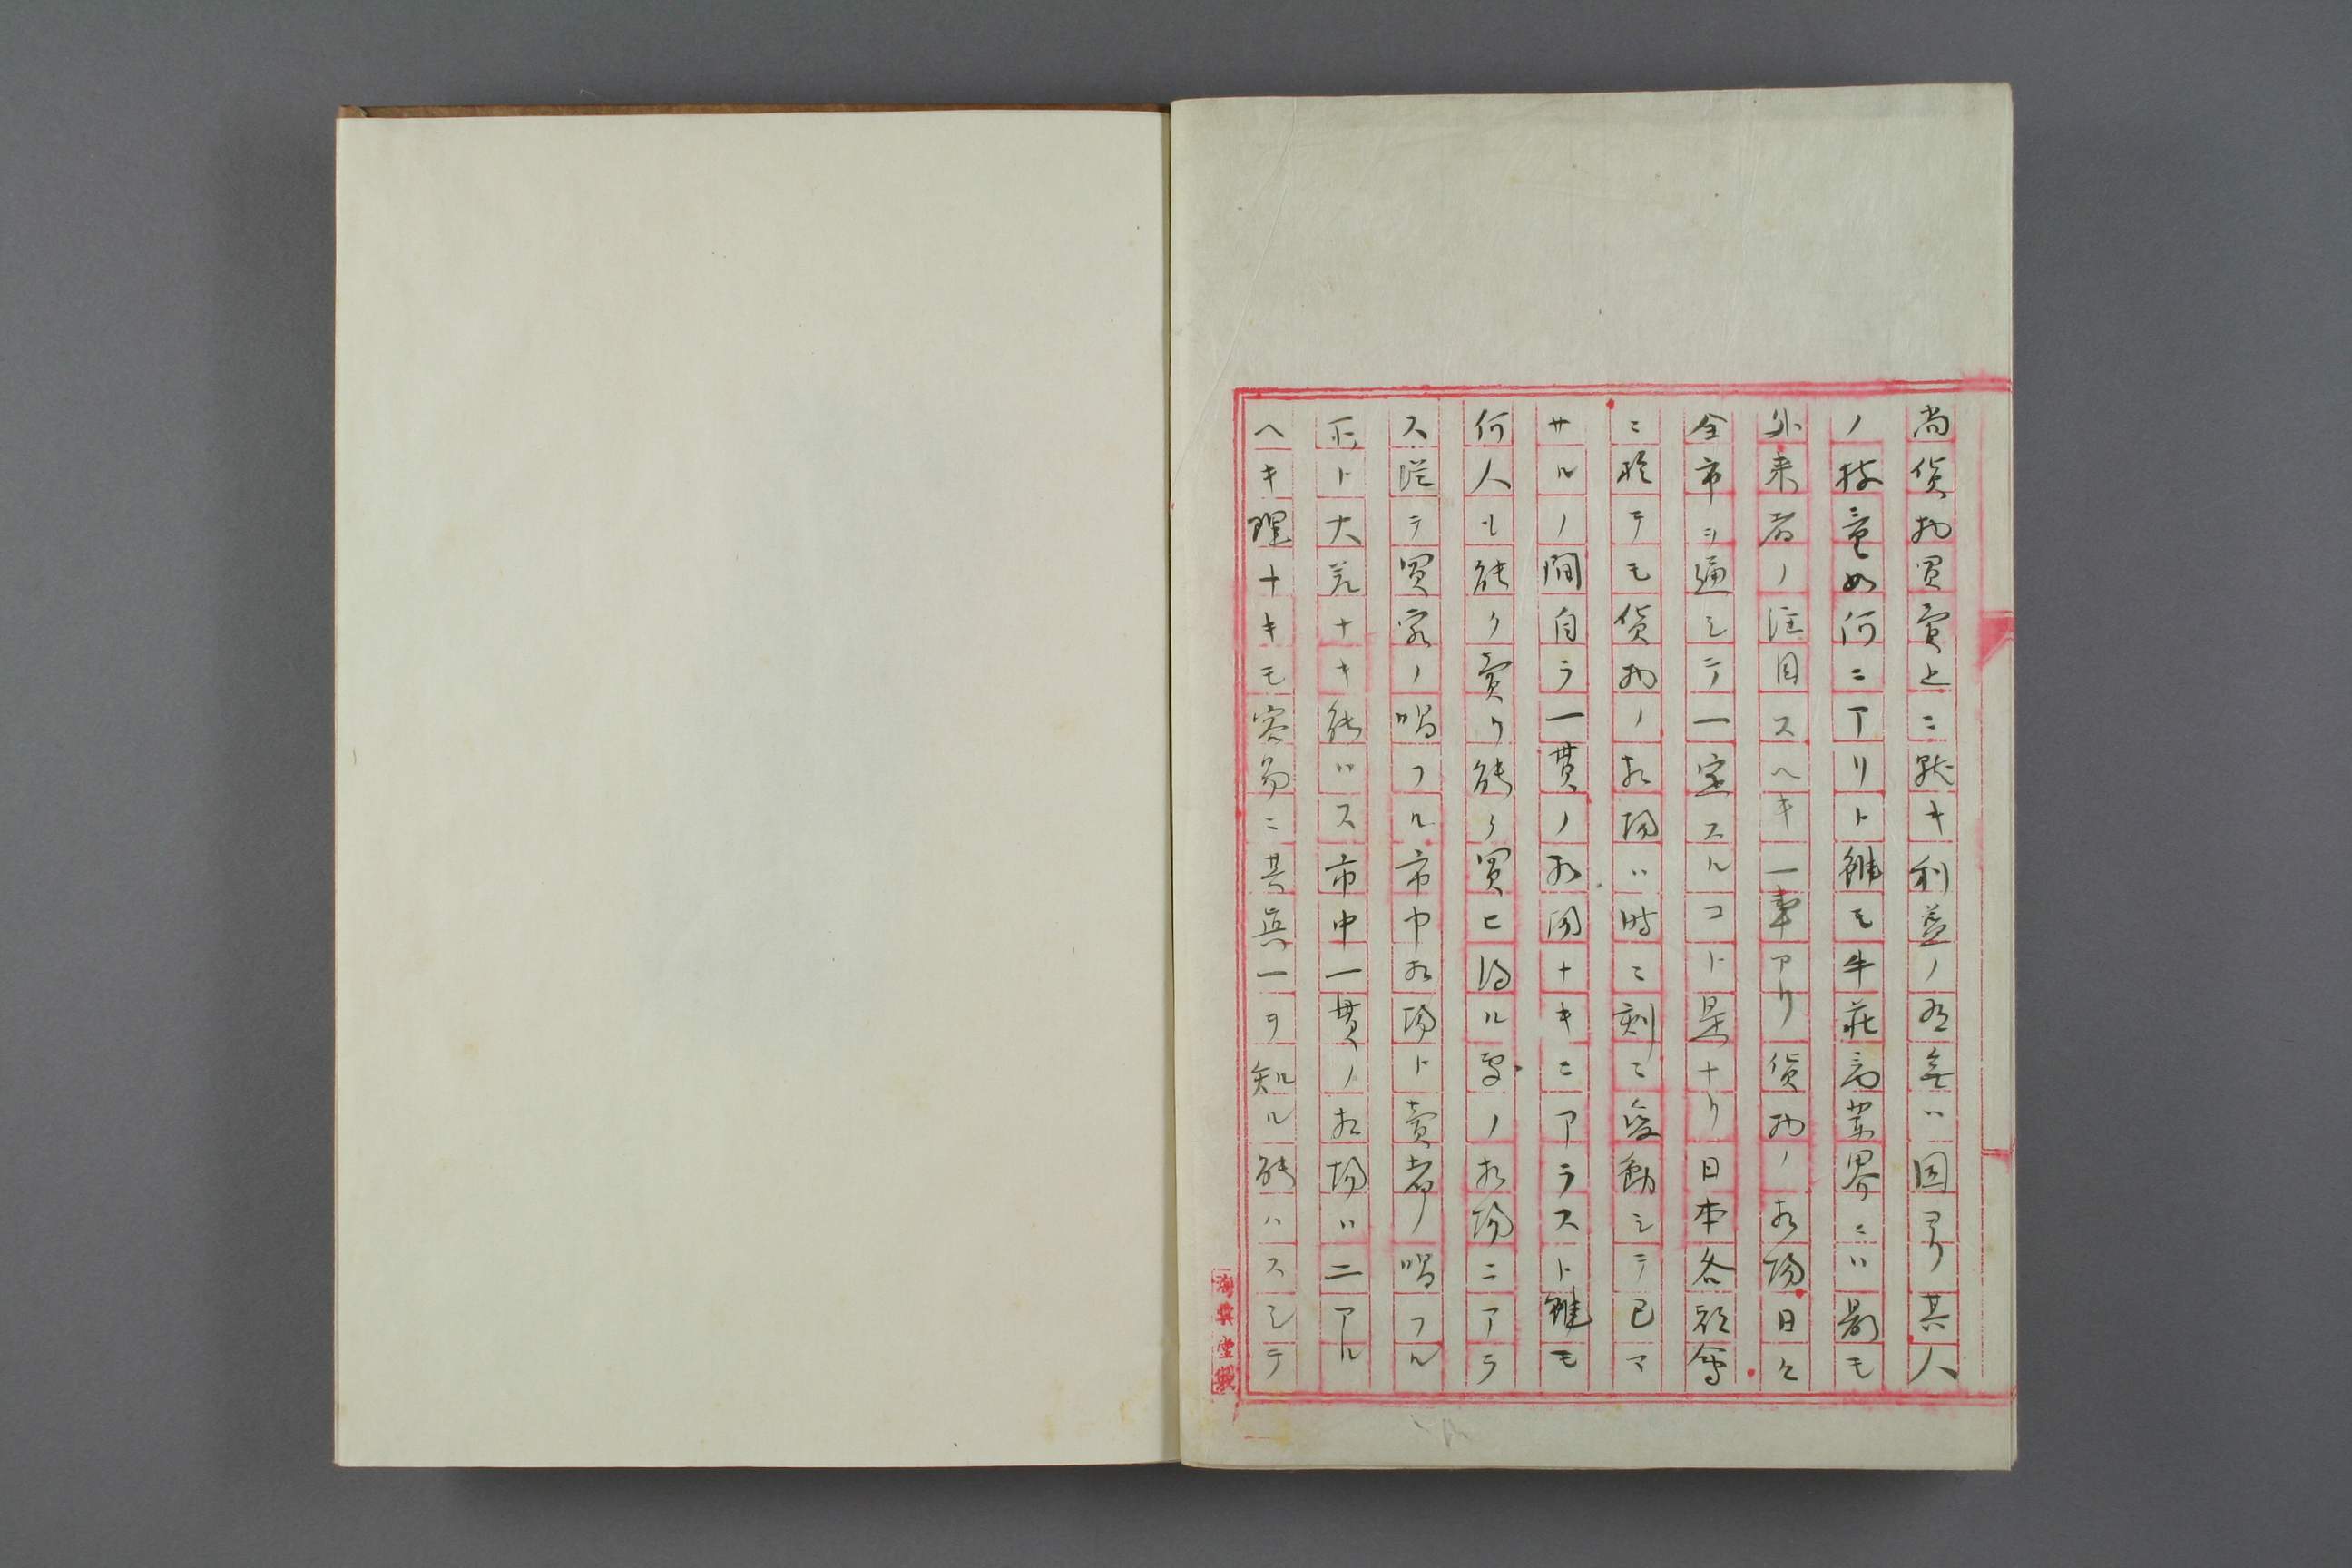 尚貨物買賣上ニ就キ利益ノ有無ハ固ヨリ其人
ノ技量如何ニアリト雖モ牛莊商業界ニハ最モ
外来者ノ注目スヘキ一事アリ貨物ノ相場日々
全市ヲ通シテ一定スルコト是ナリ日本各都會
ニ於テモ貨物ノ相場ハ時ニ刻ニ変動シテ已マ
サルノ間自ラ一貫ノ相場ナキニアラスト雖モ
何人モ能ク賣リ能ク買ヒ得ル底ノ相場ニアラ
ス従テ買客ノ唱フル市中相場ト賣者ノ唱フル
ト大差ナキ能ハス市中一貫ノ相場ハ二アル
ヘキ理ナキモ容易ニ其真一ヲ知ル能ハスシテ
堂製